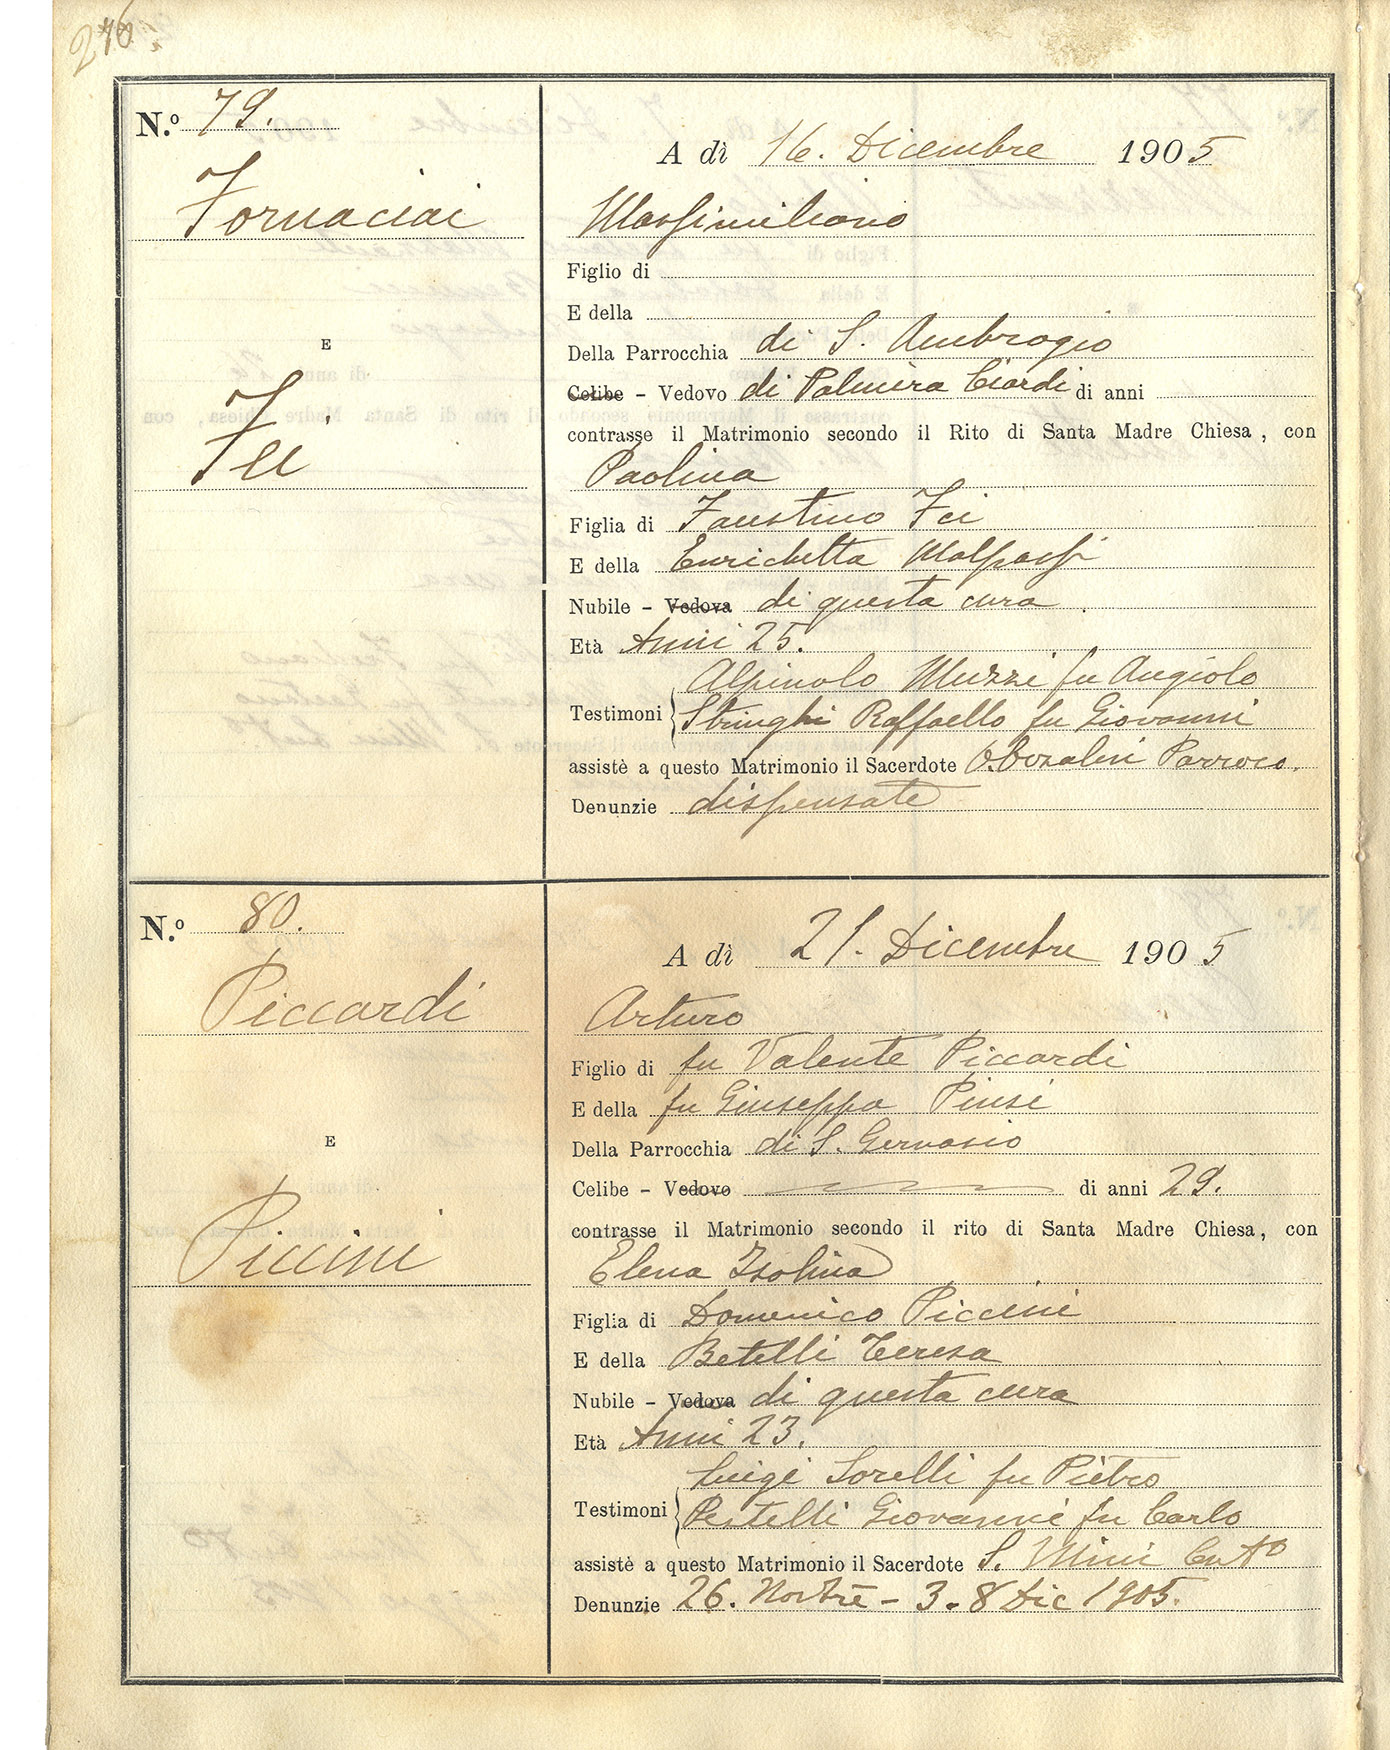 246
N.º 79.
A dì 16. Dicembre 1905
Fornaciai
Massimiliano
Figlio di
E della
E
Della Parrocchia di S. Ambrogio
Celibe - Vedovo di Palmira Ciardi di anni
Fei
contrasse il Matrimonio secondo il Rito di Santa Madre Chiesa, con
Paolina
Figlia di Faustino Fei
E della Enrichetta Malpassi
Nubile - Vedova di questa cura
Età Anni 25.
Alpinolo Muzzi fu Angiolo
Testimoni Stringhi Raffaello fu Giovanni
assistè a questo Matrimonio il Sacerdote Parroco.
Denunzie dispensate
N.º 80.
A dì 21. Dicembre 1905
Piccardi
Arturo
Figlio di fu Valente Piccardi
E della fu Giuseppa Pinsi
E
Della Parrocchia di S. Gervasio
Celibe - Vedovo di anni 29.
contrasse il Matrimonio secondo il rito di Santa Madre Chiesa, con
Piccini
Elena Isolina
Figlia di Domenico Piccini
E della Betelli Teresa
Nubile - Vedova di questa cura
Età Anni 23.
Luigi Sorelli fu Pietro
Testimoni Pestelli Giovanni fu Carlo
assistè a questo Matrimonio il Sacerdote S. Mini Cur.to
Denunzie 26. Novbre - 3. 8 Dic 1905.